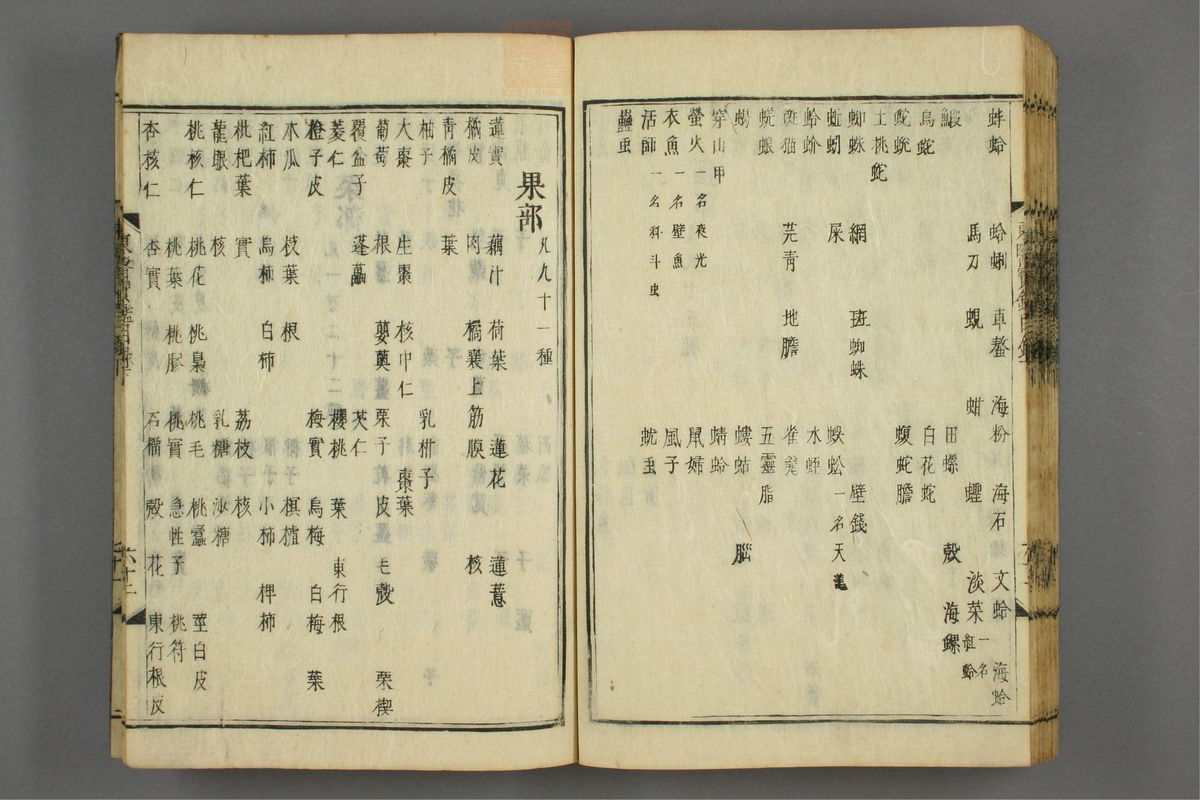 蚌蛤 蛤蜊 車螯 海粉 海石 文蛤 海蛤
馬刀 蜆 蚶 蟶 淡菜 一名紅蛤
鰕 田螺 殼 海螺
烏蛇 白花蛇
蚖 蝮蛇膽
土桃蛇
蜘蛛 網 斑蜘蛛 壁錢
蚯蚓 屎 蜈蚣 一名天龍
蛤蚧 水蛭
斑猫 芫青 地膽 雀瓮
蜣蜋 五靈脂
蝎 螻蛄 腦
穿山甲 蜻蛉
螢火 一名夜光 鼠婦
衣魚 一名壁魚 風子
活師 一名科斗虫 蚘虫
蠱虫
果部 凡九十一種
蓮實 藕汁 荷葉 蓮花 蓮薏
橘皮 肉 橘囊上筋膜 核
青橘皮 葉
柚子 乳柑子
大棗 生棗 核中仁 棗葉
葡萄 根 蘡薁 栗子 皮 毛殼 栗楔
覆盆子 蓬虆 芡仁
菱仁 櫻桃 葉 東行根
橙子皮 梅實 烏梅 白梅 葉
木瓜 枝葉 根 榠樝
紅柿 烏柿 白柿 小柿 椑柿
枇杷葉 實 荔枝 核
龍眼 核 乳糖 沙糖
桃核仁 桃花 桃梟 桃毛 桃蠹 莖白皮
桃葉 桃膠 桃實 急性子 桃符
杏核仁 杏實 石榴 殼 花 東行根皮